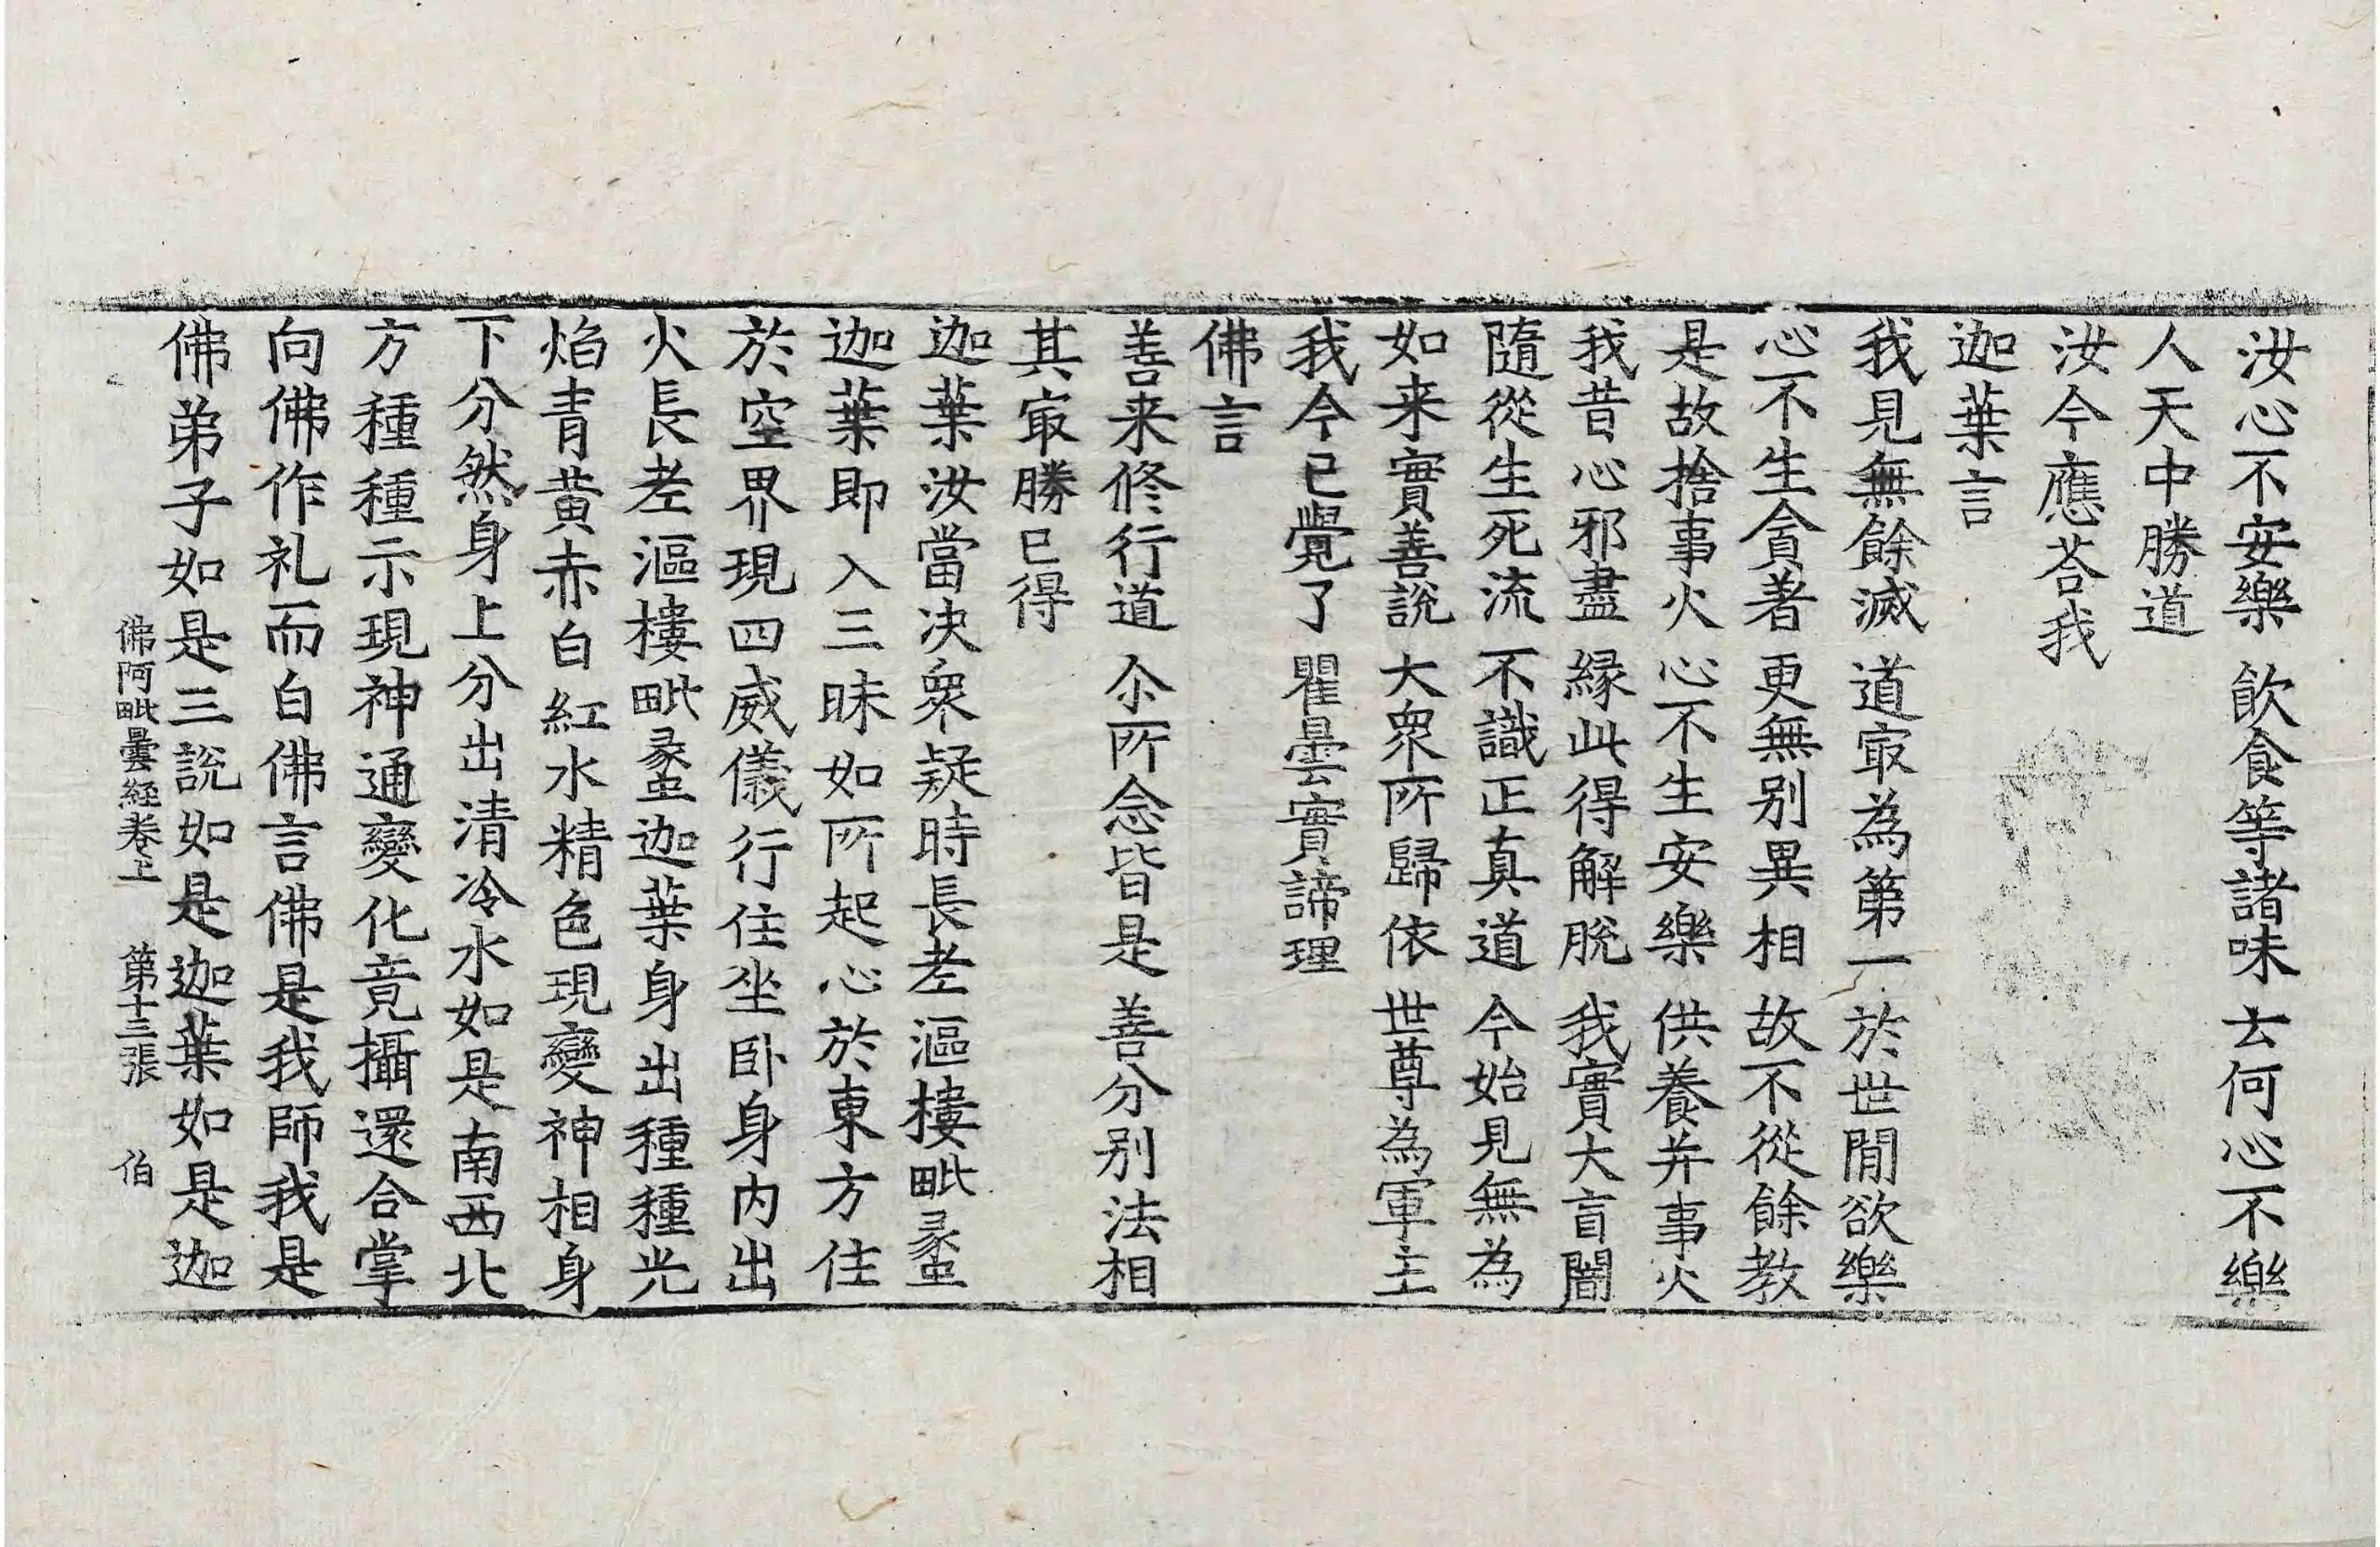 汝心不安樂　飲食等諸味　去何心不樂
人天中勝道
汝今應荅我
迦葉言
我見無餘滅　道冣為第一　於世間欲樂
心不生貪著　更無别異相　故不從餘教
是故捨事火　心不生安樂　供養并事火
我昔心邪盡　縁此得解脫　我實大盲闇
隨從生死流　不識正真道　今始見無為
如来實善說　大衆所歸依　世尊為軍主
我今已覺了　瞿曇實諦理
佛言
善来修行道　尒所念皆是　善分别法相
其冣勝已得
迦葉汝當决衆疑時長老漚樓毗蠡
迦葉即入三昧如所起心於東方住
於空界現四威儀行住坐卧身内出
火長老漚樓毗蠡迦葉身出種種光
焰青黄赤白紅水精色現變神相身
下分然身上分出清冷水如是南西北
方種種示現神通變化竟攝還合掌
向佛作礼而白佛言佛是我師我是
佛弟子如是三說如是迦葉如是迦
佛阿毗曇經卷上　第十三張　伯